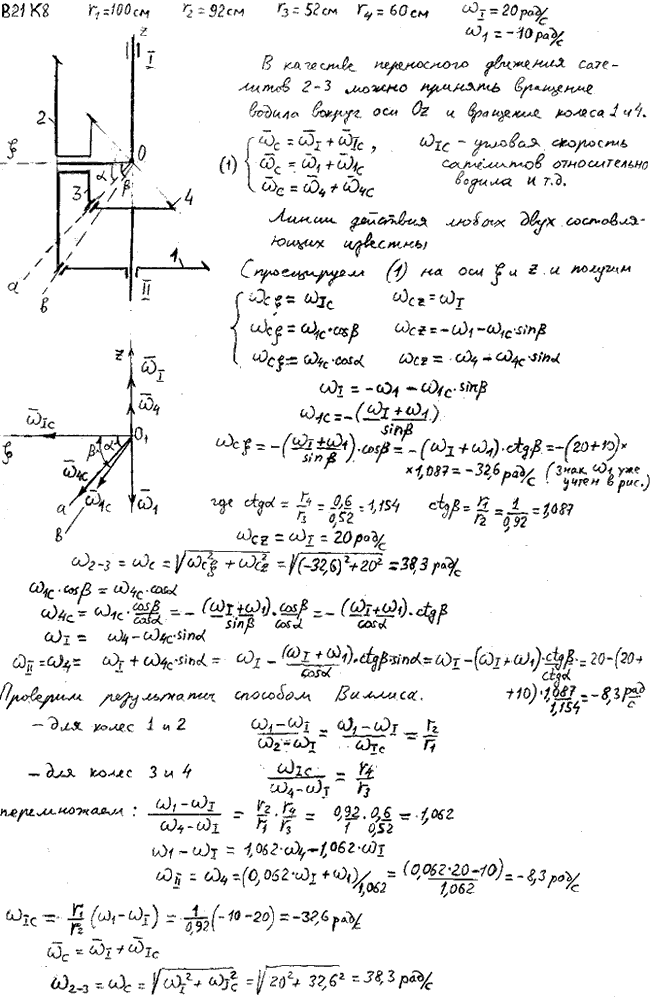 В21 К8 r₁=100см r₂=92см r₃=52см r₄=60см ω_I=20рад/с
ω₁=-10рад/с
z
I
2
ξ
α
O
β
3
4
a
в
1
II
В качестве переносного движения сате-
литов 2-3 можно принять вращение
водила вокруг оси Oz и вращение колеса 1 и 4.
(1) { ω̄_c = ω̄_I + ω̄_Ic , ω_Ic - угловая скорость
ω̄_c = ω̄₁ + ω̄_1c сателитов относительно
ω̄_c = ω̄₄ + ω̄_4c водила и т.д.
Линии действия любых двух составля-
ющих известны
Спроецируем (1) на оси ξ и z и получим
{ ω_cξ = ω_Ic ω_cz = ω_I
ω_cξ = ω_1c·cosβ ω_cz = -ω₁ - ω_1c·sinβ
ω_cξ = ω_4c·cosα ω_cz = ω₄ - ω_4c·sinα
z
ω̄_I
ω̄₄
ω̄_Ic
O₁
ξ
β
α
ω̄_4c
a
ω̄_1c
в
ω̄₁
ω_I = -ω₁ - ω_1c·sinβ
ω_1c = -(ω_I + ω₁)/sinβ
ω_cξ = -(ω_I+ω₁)/sinβ · cosβ = -(ω_I+ω₁)·ctgβ = -(20+10)×
×1,087 = -32,6 рад/с (Знак ω₁ уже
учтен в рис.)
где ctgα = r₄/r₃ = 0,6/0,52 = 1,154 ctgβ = r₁/r₂ = 1/0,92 = 1,087
ω_cz = ω_I = 20рад/с
ω₂₋₃ = ω_c = √(ω_cξ² + ω_cz²) = √((-32,6)² + 20²) = 38,3 рад/с
ω_1c·cosβ = ω_4c·cosα
ω_4c = ω_1c·cosβ/cosα = -(ω_I+ω₁)/sinβ · cosβ/cosα = -(ω_I+ω₁)/cosα · ctgβ
ω_I = ω₄ - ω_4c·sinα
ω_II = ω₄ = ω_I + ω_4c·sinα = ω_I - (ω_I + ω₁)/cosα · ctgβ·sinα = ω_I - (ω_I+ω₁)·ctgβ/ctgα = 20-(20+
+10)·1,087/1,154 = -8,3 рад/с
Проверим результаты способом Виллиса.
- для колес 1 и 2 (ω₁-ω_I)/(ω₂-ω_I) = (ω₁-ω_I)/ω_Ic = r₂/r₁
- для колес 3 и 4 ω_Ic/(ω₄-ω_I) = r₄/r₃
перемножаем: (ω₁-ω_I)/(ω₄-ω_I) = r₂/r₁ · r₄/r₃ = 0,92/1 · 0,6/0,52 = 1,062
ω₁-ω_I = 1,062·ω₄ - 1,062·ω_I
ω_II = ω₄ = (0,062·ω_I + ω₁)/1,062 = (0,062·20-10)/1,062 = -8,3 рад/с
ω_Ic = r₁/r₂ (ω₁-ω_I) = 1/0,92 (-10-20) = -32,6 рад/с
ω̄_c = ω̄_I + ω̄_Ic
ω₂₋₃ = ω_c = √(ω_I² + ω_Ic²) = √(20² + 32,6²) = 38,3 рад/с